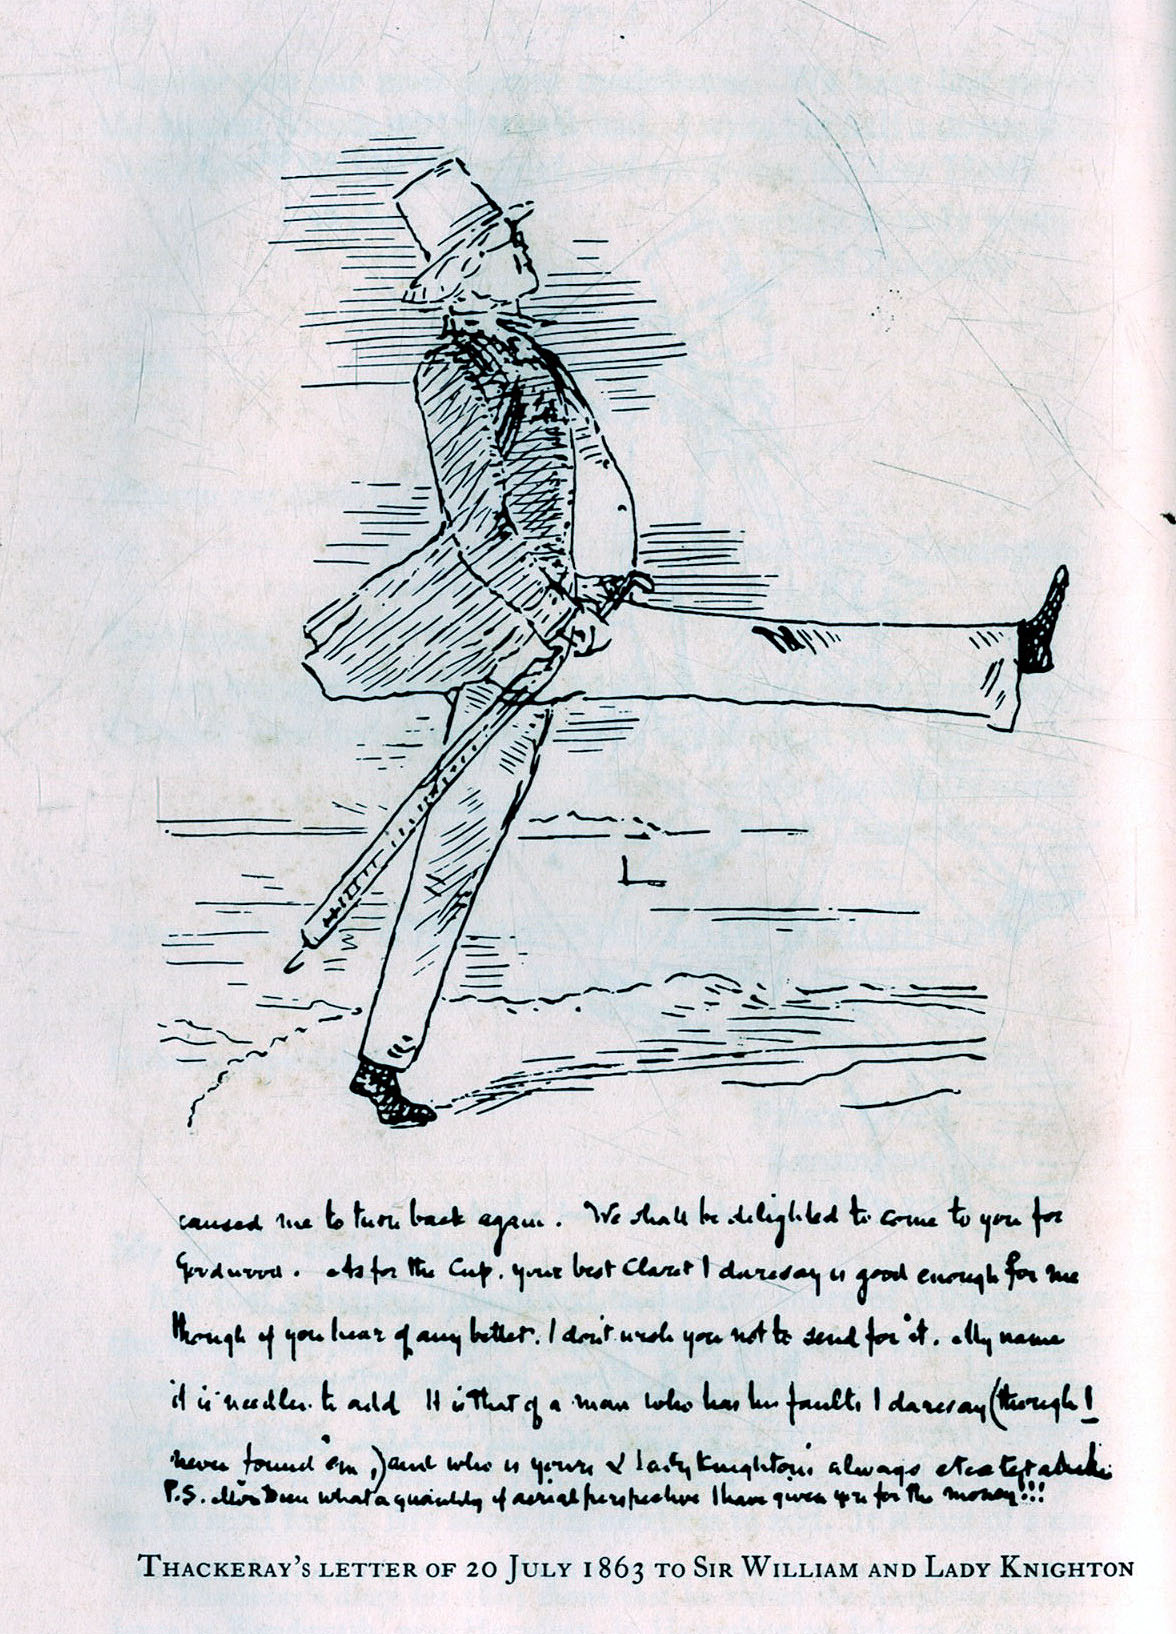 caused me to turn back again. We shall be delighted to come to you for
Goodwood. As for the Cup, your best Claret I daresay is good enough for me
though if you hear of any better, I don't wish you not to send for it. My name
it is needless to add It is that of a man who has his faults I daresay (though I
never found 'em,) and who is yours & Lady Knighton's always
P.S. Mon Dieu what a quantity of aerial perspective I have given you for the money!!!
THACKERAY'S LETTER OF 20 JULY 1863 TO SIR WILLIAM AND LADY KNIGHTON